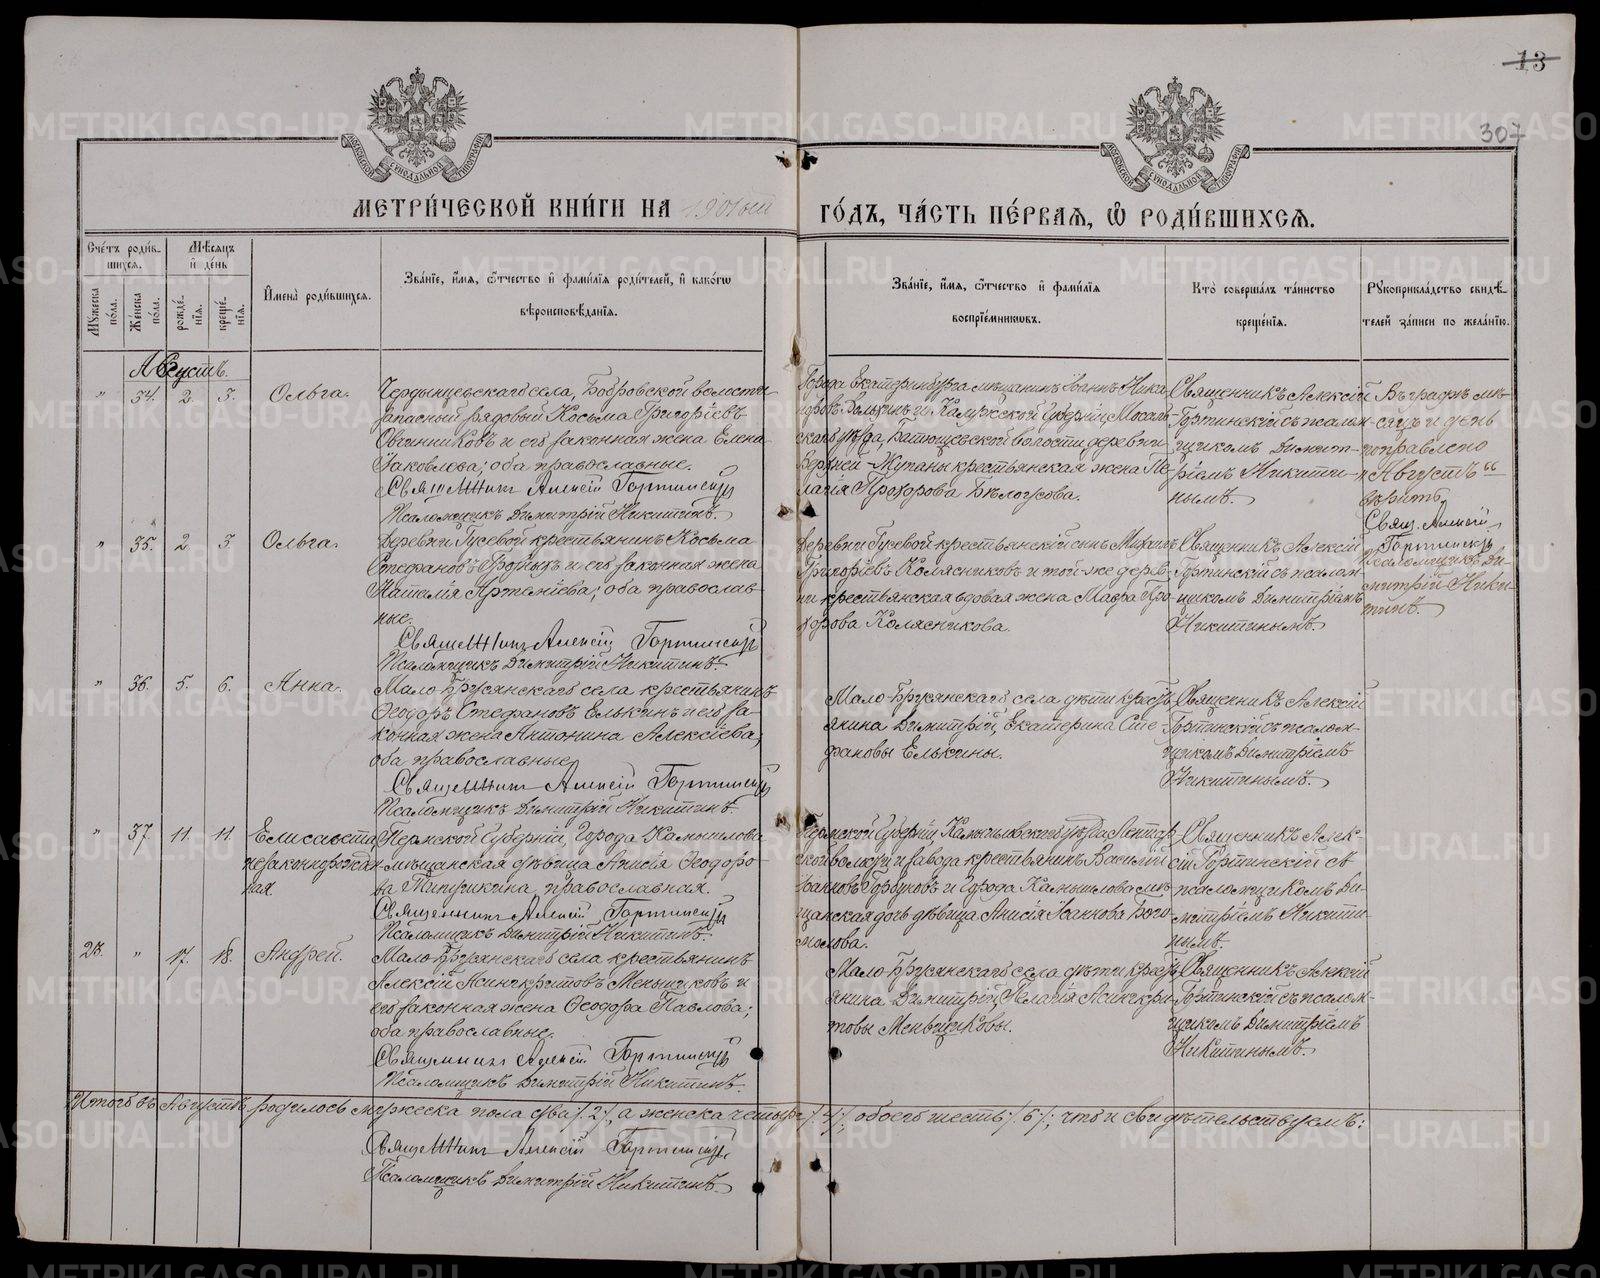 13
307
МОСКОВСКОЙ СѴНОДАЛЬНОЙ ТИПОГРАФІИ
МОСКОВСКОЙ СѴНОДАЛЬНОЙ ТИПОГРАФІИ
МЕТРИ́ЧЕСКОЙ КНИ́ГИ НА 1901ый ГО́ДЪ, ЧА́СТЬ ПЕ́РВАѦ, Ѽ РОДИ́ВШИХСѦ.
Сче́тъ роди́в-
шихсѧ.
Мѣ́сѧцъ
и҆ де́нь
Мꙋ́жеска по́ла.
Же́нска по́ла.
рожде́-
нїѧ.
креще́-
нїѧ.
И҆мена̀ роди́вшихсѧ.
Зва́нїе, и҆́мѧ, ѻ҆́тчество и҆ фами́лїѧ роди́телей, и҆ како́гѡ
вѣроисповѣ́данїѧ.
Зва́нїе, и҆́мѧ, ѻ҆́тчество и҆ фами́лїѧ
воспрїе́мникѡвъ.
Кто̀ соверша́лъ та́инство
креще́нїѧ.
Рꙋкоприкла́дство свидѣ́-
телей за́писи по жела́нїю.
Августъ.
" 34. 2. 3. Ольга.
Чердынцевскаго села, Бобровской волости
запасный рядовый Косьма Григоріевъ
Овчинниковъ и его законная жена Елена
Іаковлова; оба православные.
Священникъ Алексій Гортинскій
Псаломщикъ Димитрій Никитинъ.
Города Екатеринбурга мѣщанинъ Іоаннъ Ника-
ской уѣзда, волости деревни
крестьянская жена Пе-
лагія Прохорова Бѣлоусова.
Священникъ Алексій
Гортинскій съ псалом-
щикомъ Димит-
ріемъ Никити-
нымъ.
Въ графѣ мѣ-
сяцъ и день
поправлено
„Августъ“
вѣрить
Свящ. Алексій
Гортинскій
Псаломщикъ Ди-
митрій Ники-
тинъ.
" 35. 2 3 Ольга.
Деревни Гусевой крестьянинъ Косьма
Стефановъ и его законная жена
Наталія Артеміева; оба православ-
ные.
Священникъ Алексій Гортинскій
Псаломщикъ Димитрій Никитинъ.
Деревни Гусевой крестьянскій сынъ Михаилъ
Григоріевъ Колясниковъ и той-же дерев-
ни крестьянская вдовая жена Мавра Про-
хорова Колясникова.
Священникъ Алексій
Гортинскій съ псалом-
щикомъ Димитріемъ
Никитинымъ.
" 36. 5. 6. Анна.
Мало-Брусянскаго села крестьянинъ
Ѳеодоръ Стефановъ Елькинъ и его за-
конная жена Антонина Алексіева;
оба православные.
Священникъ Алексій Гортинскій
Псаломщикъ Димитрій Никитинъ.
Мало-Брусянскаго села дѣти кресть-
янина Димитрій, Екатерина Сте-
фановы Елькины.
Священникъ Алексій
Гортинскій съ псалом-
щикомъ Димитріемъ
Никитинымъ.
" 37. 11. 11. Елисавета
незаконнорожден-
ная
Пермской Губерніи, Города Камышлова
мѣщанская дѣвица Анисія Ѳеодоро-
ва Типушкина, православная.
Священникъ Алексій Гортинскій
Псаломщикъ Димитрій Никитинъ.
Пермской Губерніи, Камышловскаго уѣзда
волости и завода крестьянинъ Василій
Іоанновъ Горбуновъ и Города Камышлова мѣ-
щанская дочь дѣвица Анисія Іоаннова Бого-
молова.
Священникъ Алек-
сій Гортинскій съ
псаломщикомъ Ди-
митріемъ Никити-
нымъ.
28. " 17. 18. Андрей.
Мало-Брусянскаго села крестьянинъ
Алексій Асинкритовъ Меньшиковъ и
его законная жена Ѳеодора Павлова;
оба православные.
Священникъ Алексій Гортинскій
Псаломщикъ Димитрій Никитинъ.
Мало-Брусянскаго села дѣти кресть-
янина Димитрій, Пелагія Асинкри-
товы Меньщиковы.
Священникъ Алексій
Гортинскій съ псалом-
щикомъ Димитріемъ
Никитинымъ.
Итого въ Августѣ родилось мужеска пола два /2/, а женска четыре /4/, обоего шесть /6/; что и свидѣтельствуемъ:
Священникъ Алексій Гортинскій
Псаломщикъ Димитрій Никитинъ.
METRIKI.GASO-URAL.RU